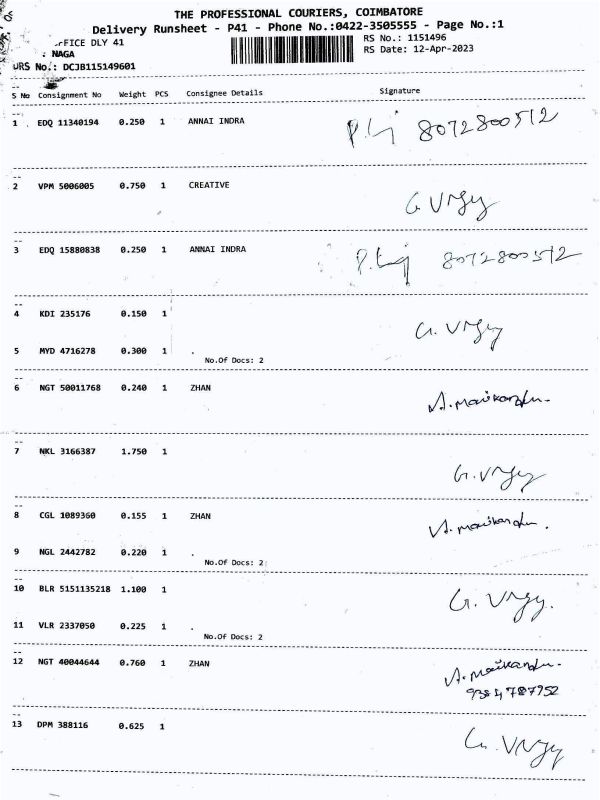 THE PROFESSIONAL COURIERS, COIMBATORE
Delivery Runsheet - P41 - Phone No.:0422-3505555 - Page No.:1
FFICE DLY 41 RS No.: 1151496
: NAGA RS Date: 12-Apr-2023
DRS No.: DCJB115149601
S No Consignment No Weight PCS Consignee Details Signature
1 EDQ 11340194 0.250 1 ANNAI INDRA 8072800512
2 VPM 5006005 0.750 1 CREATIVE G. Vijay
3 EDQ 15880838 0.250 1 ANNAI INDRA 8072800512
4 KDI 235176 0.150 1 G. Vijay
5 MYD 4716278 0.300 1 .
No.Of Docs: 2
6 NGT 50011768 0.240 1 ZHAN A. Manikandan.
7 NKL 3166387 1.750 1 G. Vijay
8 CGL 1089360 0.155 1 ZHAN A. Manikandan.
9 NGL 2442782 0.220 1 .
No.Of Docs: 2
10 BLR 5151135218 1.100 1 G. Vijay.
11 VLR 2337050 0.225 1 .
No.Of Docs: 2
12 NGT 40044644 0.760 1 ZHAN A. Manikandan.
9384787952
13 DPM 388116 0.625 1 G. Vijay